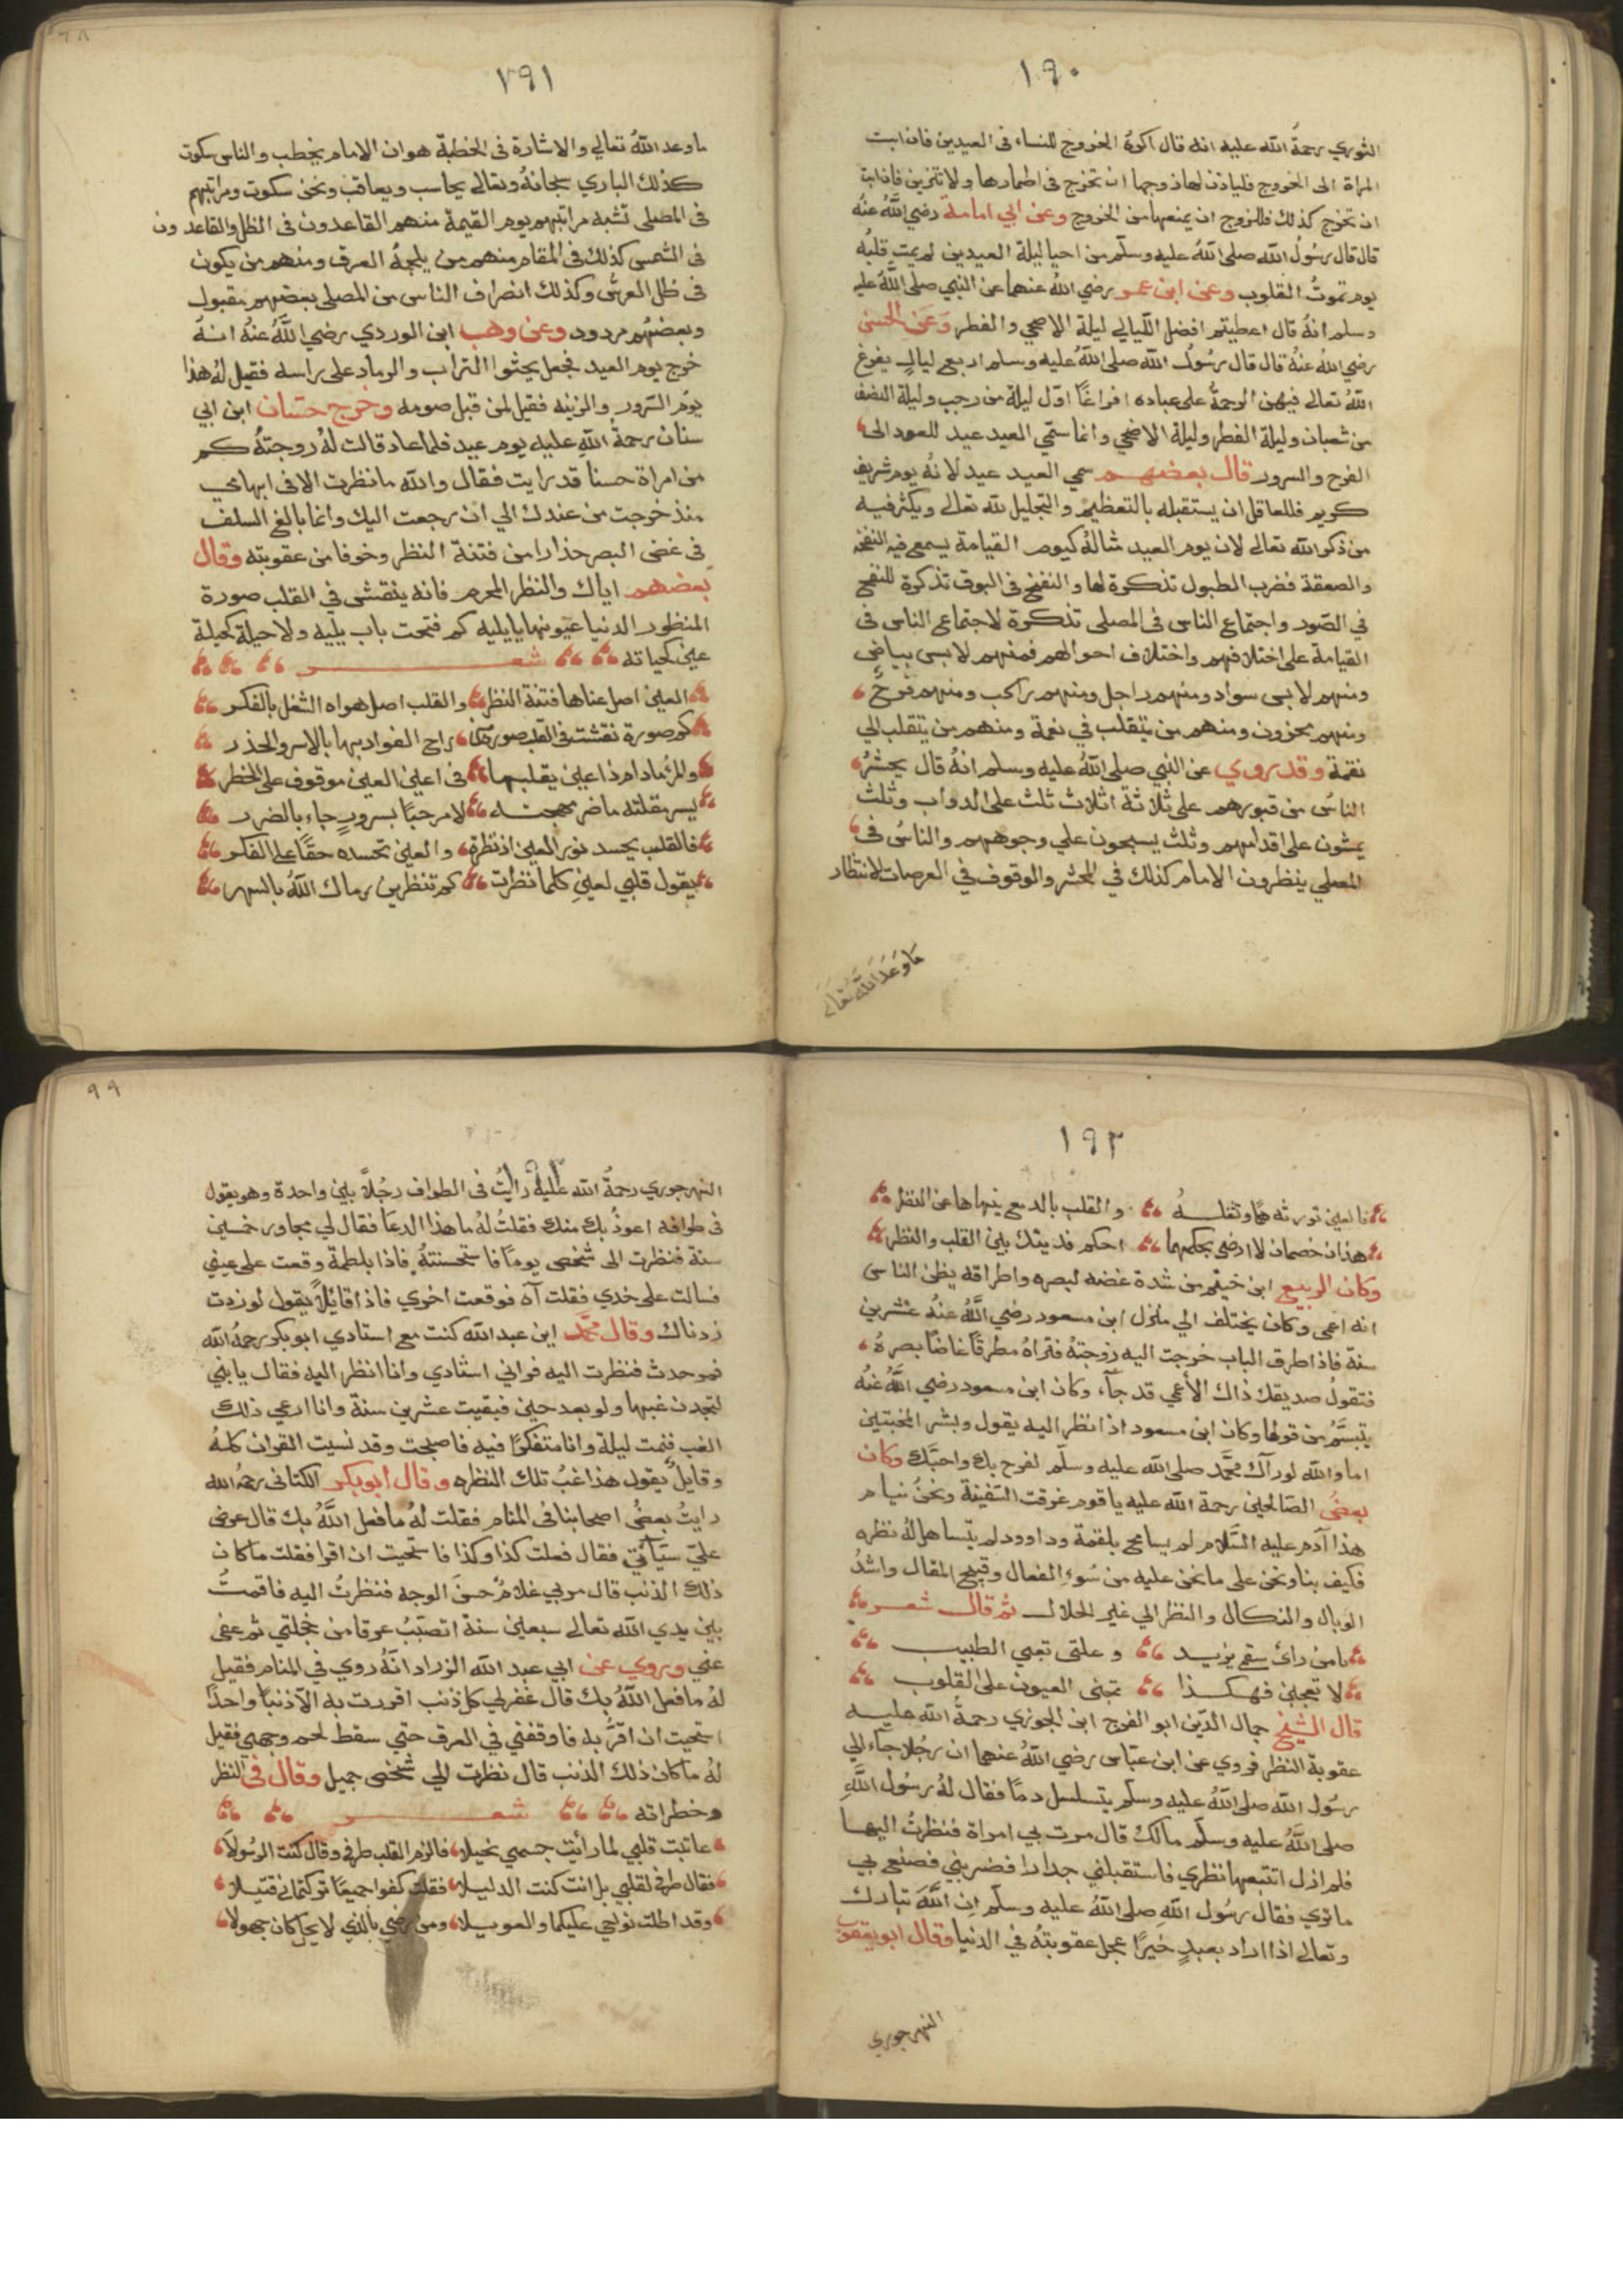 ١٩٠
الثوري رحمة الله عليه انه قال اكره الخروج للنساء فى العيدين فان ابت
المراة الى الخروج فلياذن لها زوجها ان تخرج فى اطمارها ولا تتزين فان ابت
ان تخرج كذلك فللزوج ان يمنعها من الخروج وعن ابي امامة رضي الله عنه
قال قال رسول الله صلى الله عليه وسلم من احيا ليلة العيدين لم يمت قلبه
يوم تموت القلوب وعن ابن عمر رضي الله عنهما عن النبي صلى الله عليه
وسلم انه قال اعطيتم افضل الليالي ليلة الاضحي والفطر وعن الحسن
رضي الله عنه قال قال رسول الله صلى الله عليه وسلم اربع ليال يفرغ
الله تعالى فيهن الرحمة على عباده افراغا اول ليلة من رجب وليلة النصف
من شعبان وليلة الفطر وليلة الاضحي وانما سمي العيد عيد للعود الى
الفرح والسرور قال بعضهم سمي العيد عيد لانه يوم شريف
كريم فللعاقل ان يستقبله بالتعظيم والتجليل لله تعالى ويكثر فيه
من ذكر الله تعالى لان يوم العيد مثاله كيوم القيامة يسمع فيه النفخة
والصعقة فضرب الطبول تذكرة لها والنفخ فى البوق تذكرة للنفخ
في الصور واجتماع الناس فى المصلى تذكرة لاجتماع الناس فى
القيامة على اختلافهم واختلاف احوالهم فمنهم لابس بياض
ومنهم لابس سواد ومنهم راجل ومنهم راكب ومنهم فرح
ومنهم محزون ومنهم من يتقلب في نعمة ومنهم من يتقلب الي
نقمة وقد روي عن النبي صلى الله عليه وسلم انه قال يحشر
الناس من قبورهم على ثلاثة اثلاث ثلث على الدواب وثلث
يمشون على اقدامهم وثلث يسبحون علي وجوههم والناس فى
المصلي ينظرون الامام كذلك في المحشر والوقوف في العرصات لانتظار
ما وعد الله تعالى
١٩١
٩٨
ما وعد الله تعالي والاشارة فى الخطبة هو ان الامام يخطب والناس سكوت
كذلك الباري سبحانه وتعالى يحاسب ويعاقب ونحن سكوت ومراتبهم
فى المصلى تشبه مراتبهم يوم القيمة منهم القاعدون فى الظل والقاعدون
فى الشمس كذلك فى المقام منهم من يلجمه العرق ومنهم من يكون
فى ظل العرش وكذلك انصراف الناس من المصلى بعضهم مقبول
وبعضهم مردود وعن وهب ابن الوردي رضي الله عنه انه
خرج يوم العيد فجعل يحثوا التراب والرماد على راسه فقيل له هذا
يوم السرور والزينه فقيل لمن قبل صومه وخرج حسان ابن ابي
سنان رحمة الله عليه يوم عيد فلما عاد قالت له زوجته كم
من امراة حسنا قد رايت فقال والله ما نظرت الا فى ابهامي
منذ خرجت من عندك الي ان رجعت اليك وانما بالغ السلف
فى غض البصر حذارا من فتنة النظر وخوفا من عقوبته وقال
بعضهم اياك والنظر المحرم فانه ينقش في القلب صورة
المنظور الدنيا كم فتحت باب بليه ولا حيلة كحيلة
عين كحياته شعر
العين اصل عناها فتنة النظر والقلب اصل هواه الشغل بالفكر
كم صورة نقشت فى القلب صورتها راح الفواد بها بالاسر والحذر
والمرء مادام ذا عين يقلبها فى اعين العين موقوف على الخطر
يسر مقلته ما ضر مهجته لا مرحبا بسرور جاء بالضرر
فالقلب يحسد نور العين اذ نظرت والعين تحسده حقا على الفكر
يقول قلبي لعيني كلما نظرت كم تنظرين رماك الله بالسهر
١٩٢
فالعين تورثه هما وتقلبه والقلب بالدمع ينهاها عن النظر
هذان خصمان لا ارضى بحكمهما احكم فديتك بين القلب والنظر
وكان الربيع ابن خيثم من شدة غضه لبصره واطراقه يظن الناس
انه اعمى وكان يختلف الي منزل ابن مسعود رضي الله عنه عشرين
سنة فاذا طرق الباب خرجت اليه زوجته فتراه مطرقا غاضا بصره
فتقول صديقك ذاك الأعمي قد جآء وكان ابن مسعود رضي الله عنه
يتبسم من قولها وكان ابن مسعود اذا نظر اليه يقول وبشر المخبتين
اما والله لو رآك محمد صلى الله عليه وسلم لفرح بك واحبك وكان
بعض الصالحين رحمة الله عليه يا قوم غرقت السفينة ونحن نيام
هذا آدم عليه السلام لم يسامح بلقمة وداوود لم يتساهل له نظره
فكيف بنا ونحن على ما نحن عليه من سوء الفعال وقبيح المقال واشد
الوبال والنكال والنظر الي غير الحلال ثم قال شعر
يا من راى سقمي يزيد وعلتى تعيي الطبيب
لا تعجبن فهكذا تجنى العيون على القلوب
قال الشيخ جمال الدين ابو الفرج ابن الجوزي رحمة الله عليه
عقوبة النظر فروي عن ابن عباس رضي الله عنهما ان رجلا جآء الي
رسول الله صلى الله عليه وسلم يتسلسل دما فقال له رسول الله
صلى الله عليه وسلم مالك قال مرت بي امراة فنظرت اليها
فلم ازل اتتبعها نظري فاستقبلني جدارا فضربني فصنع بي
ما تري فقال رسول الله صلى الله عليه وسلم ان الله تبارك
وتعالى اذا اراد بعبد خيرا عجل عقوبته في الدنيا وقال ابو يعقوب
النهرجوري
٩٩
النهرجوري رحمة الله عليه رايت فى الطواف رجلا بعين واحدة وهو يقول
فى طوافه اعوذ بك منك فقلت له ما هذا الدعا فقال لي مجاور خمسين
سنة فنظرت الى شخص يوما فاستحسنته فاذا بلطمة وقعت على عيني
فسالت على خدي فقلت آه فوقعت اخري فاذا قائلا يقول لو زدت
زدناك وقال محمد ابن عبد الله كنت مع استادي ابو بكر رحمه الله
فمر حدث فنظرت اليه فراني استادي وانا انظر اليه فقال يا بني
لتجدن غبها ولو بعد حين فبقيت عشرين سنة وانا ارعي ذلك
الغب فنمت ليلة وانا متفكرا فيه فاصبحت وقد نسيت القران كله
وقايل يقول هذا غب تلك النظره وقال ابو بكر الكتانى رحمه الله
رايت بعض اصحابنا فى المنام فقلت له ما فعل الله بك قال عرض
علي سيآتي فقال فعلت كذا وكذا فاستحيت ان اقر فقلت ما كان
ذلك الذنب قال مر بي غلام حسن الوجه فنظرت اليه فاقمت
بين يدي الله تعالى سبعين سنة اتصبب عرقا من خجلتي ثم عفى
عني وروي عن ابي عبد الله الزراد انه روي في المنام فقيل
له ما فعل الله بك قال غفر لي كل ذنب اقررت به الا ذنبا واحدا
استحيت ان اقر به فاوقفني في العرق حتي سقط لحم وجهي فقيل
له ما كان ذلك الذنب قال نظرت الي شخص جميل وقال فى النظر
وخطراته شعر
عاتبت قلبي لما رايت جسمي نحيلا فالزم القلب طرفى وقال كنت الرسولا
فقال طرفى لقلبي بل انت كنت الدليلا فقلت كفوا جميعا تركتمانى قتيلا
وقد اطلت نوحي عليكما والعويلا ومن رضي بالذي لا يحل كان جهولا